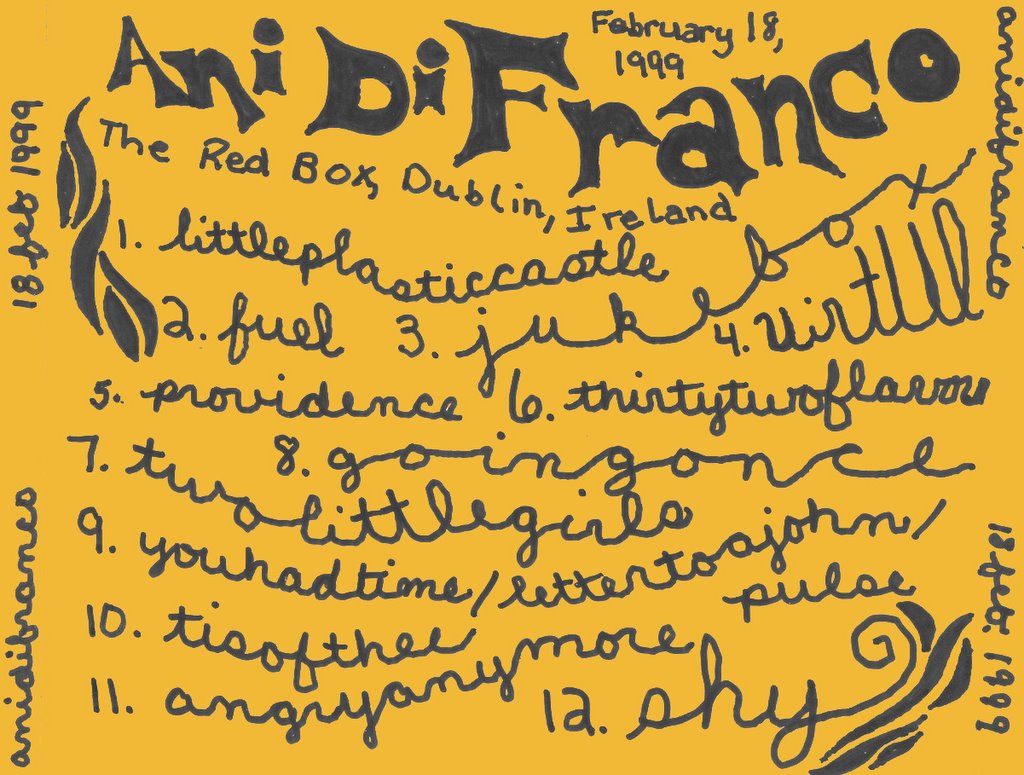 Ani DiFranco
February 18,
1999
The Red Box, Dublin, Ireland
1. littleplasticcastle
2. fuel 3. jukebox 4. virtue
5. providence 6. thirtytwoflavors
7. twolittlegirls 8. goingonce
9. youhadtime/lettertoajohn/
pulse
10. tisofthee
11. angryanymore 12. shy
18 feb 1999
anidifranco
anidifranco
18 feb. 1999